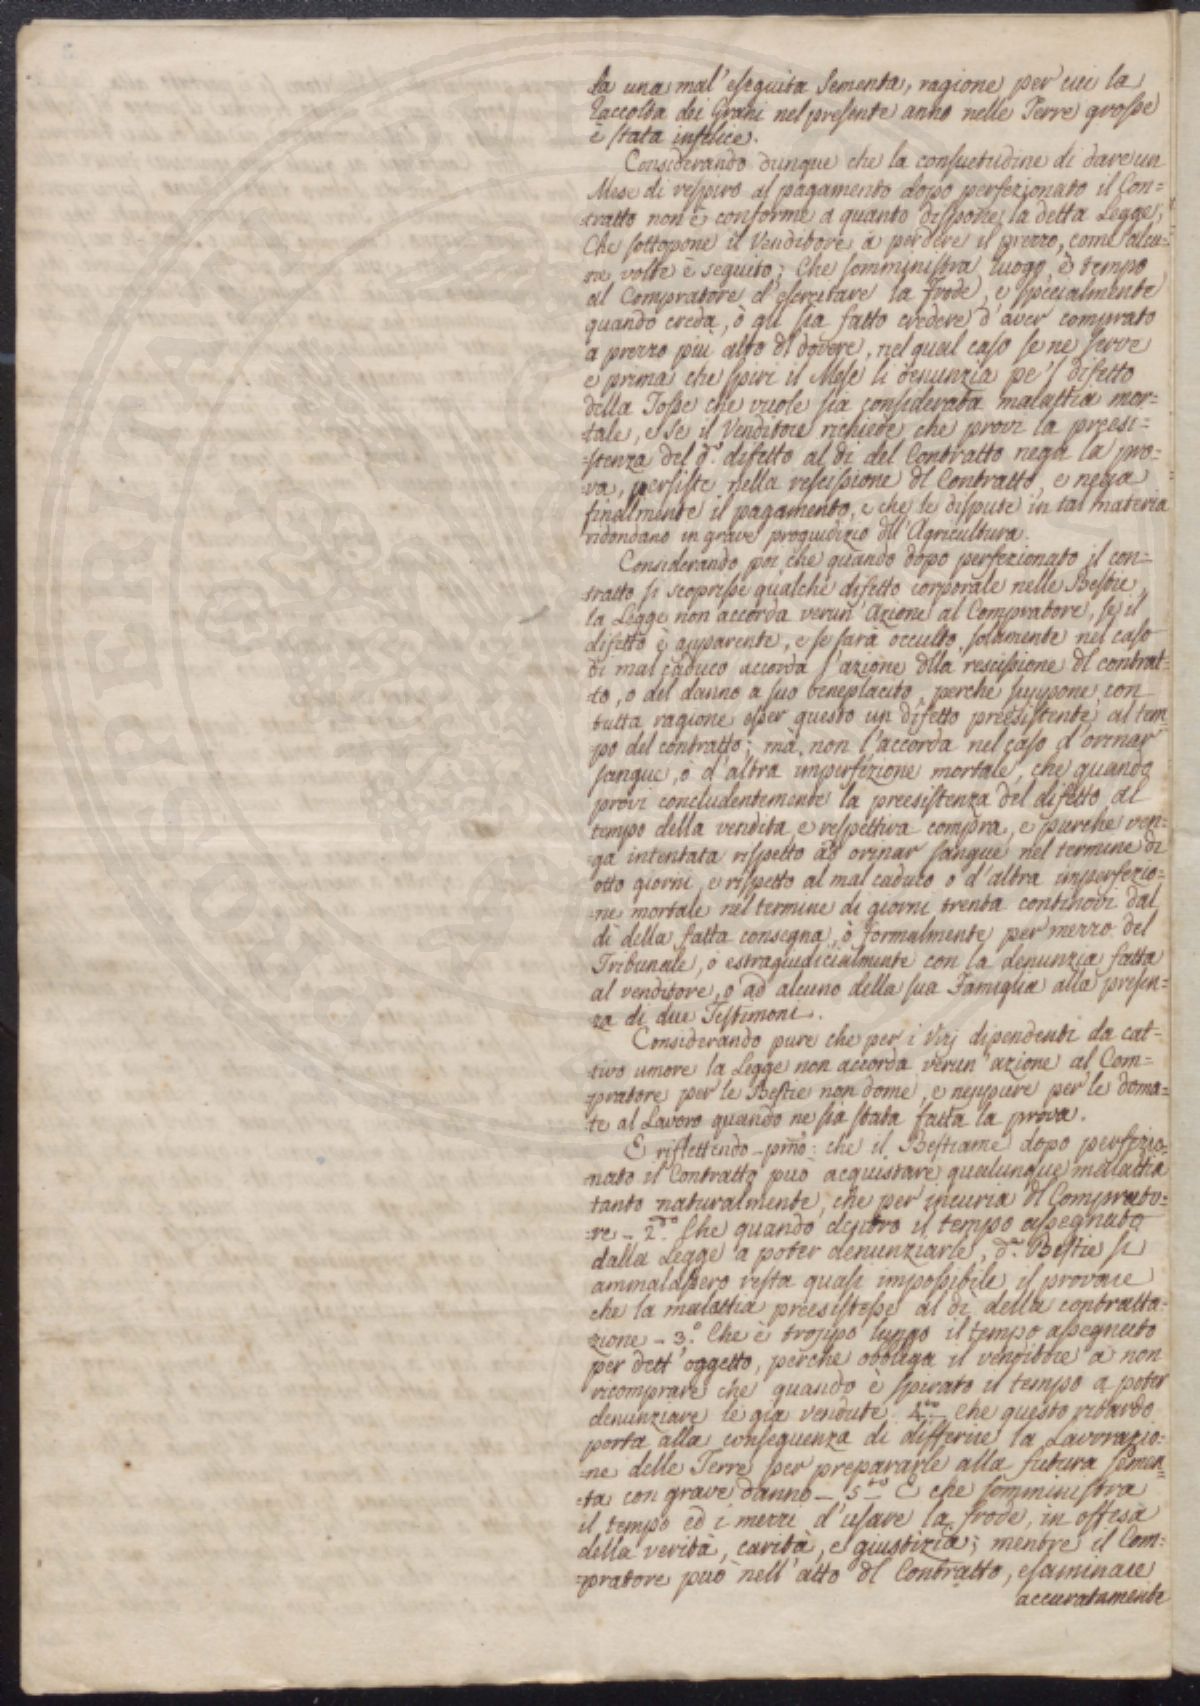 ta una mal'eseguita Sementa, ragione per cui la
Raccolta dei Grani nel presente anno nelle Terre grosse
è stata infelice.
Considerando dunque che la consuetudine di dare un
Mese di respiro al pagamento dopo perfezionato il Con=
=tratto non è conforme a quanto dispone la detta Legge;
Che sottopone il Venditore a perdere il prezzo, come alcu=
ne volte è seguito; Che somministra luogo, è tempo
al Compratore d'esercitare la Frode, e specialmente
quando creda, ò gli sia fatto credere d'aver comprato
a prezzo più alto dl dovere, nel qual caso se ne serve
e prima che spiri il Mese li denunzia pe'l difetto
della Tosse che vuole sia considerata malattia mor=
=tale, e se il Venditore richiede che provi la preesi=
=stenza del d.º difetto al dì del Contratto nega la pro=
=va, persiste nella rescissione dl Contratto, e nega
finalmente il pagamento, e che le dispute in tal materia
ridondano in grave progiudizio dll'Agricultura.
Considerando poi, che quando dopo perfezionato il con=
=tratto si scoprisse qualche difetto corporale nelle Bestie,
la Legge non accorda verun'Azione al Compratore, se il
difetto è apparente, e se sarà occulto, solamente nel caso
di mal caduco accorda l'azione dlla rescissione dl contrat=
=to, o del danno a suo beneplacito, perche suppone con
tutta ragione esser questo un difetto preesistente al tem=
=po del contratto; mà non l'accorda nel caso d'orinar
sangue, ò d'altra imperfezione mortale, che quando
provi concludentemente la preesistenza del difetto al
tempo della vendita e respettiva compra, e purche ven=
=ga intentata rispetto ad orinar sangue nel termine di
otto giorni, e rispetto al mal caduco o d'altra imperfezio=
=ne mortale nel termine di giorni trenta continovi dal
dì della fatta consegna, ò formalmente per mezzo del
Tribunale, ò estragiudicialmente con la denunzia fatta
al venditore, o ad alcuno della sua Famiglia alla presen=
=za di due Testimoni.
Considerando pure che per i Vizj dipendenti da cat=
=tivo umore la Legge non accorda verun'azione al Com=
=pratore per le Bestie non dome, e neppure per le doma=
=te al Lavoro quando ne sia stata fatta la prova.
E riflettendo - pmo: che il Bestiame dopo perfezio=
=nato il Contratto può acquistare qualunque malattia
tanto naturalmente, che per incuria dl Comprato=
=re - 2.do Che quando dentro il tempo assegnato
dalla Legge a poter denunziarle, d.e Bestie si
ammalassero resta quasi impossibile il provare
che la malattia preesistesse al dì della contratta=
zione - 3.º Che è troppo lungo il tempo assegnato
per dett'oggetto, perche obbliga il venditore a non
ricomprare che quando è spirato il tempo a poter
denunziare le già vendute. 4.to Che questo ritardo
porta alla conseguenza di differire la Lavorazio=
=ne delle Terre per prepararle alla futura semen=
=ta con grave danno - 5.to E che somministra
il tempo ed i mezzi d'usare la frode, in offesa
della verità, carità, e giustizia; mentre il Com=
=pratore può nell'atto dl Contratto, esaminare
accuratamente